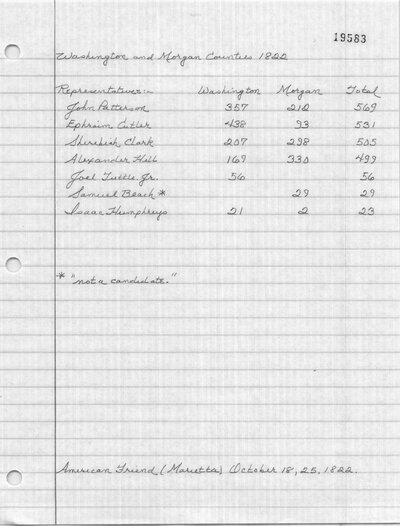 19583
Washington and Morgan Counties 1822
Representatives:- Washington Morgan Total
John Patterson 357 212 569
Ephraim Cutler 438 93 531
Sherebiah Clark 207 298 505
Alexander Hill 169 330 499
Joel Tuttle, Jr. 56 56
Samuel Beach * 29 29
Isaac Humphreys 21 2 23
* "not a candidate."
American Friend (Marietta) October 18, 25, 1822.